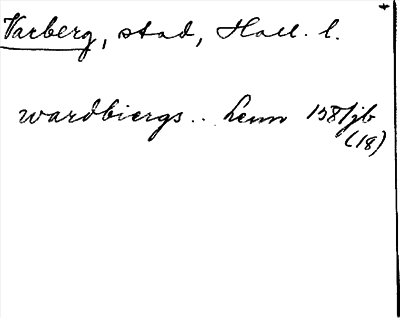 Varberg, stad, Hall. l.
wardbiergs .. Lenn 158/jb
(18)